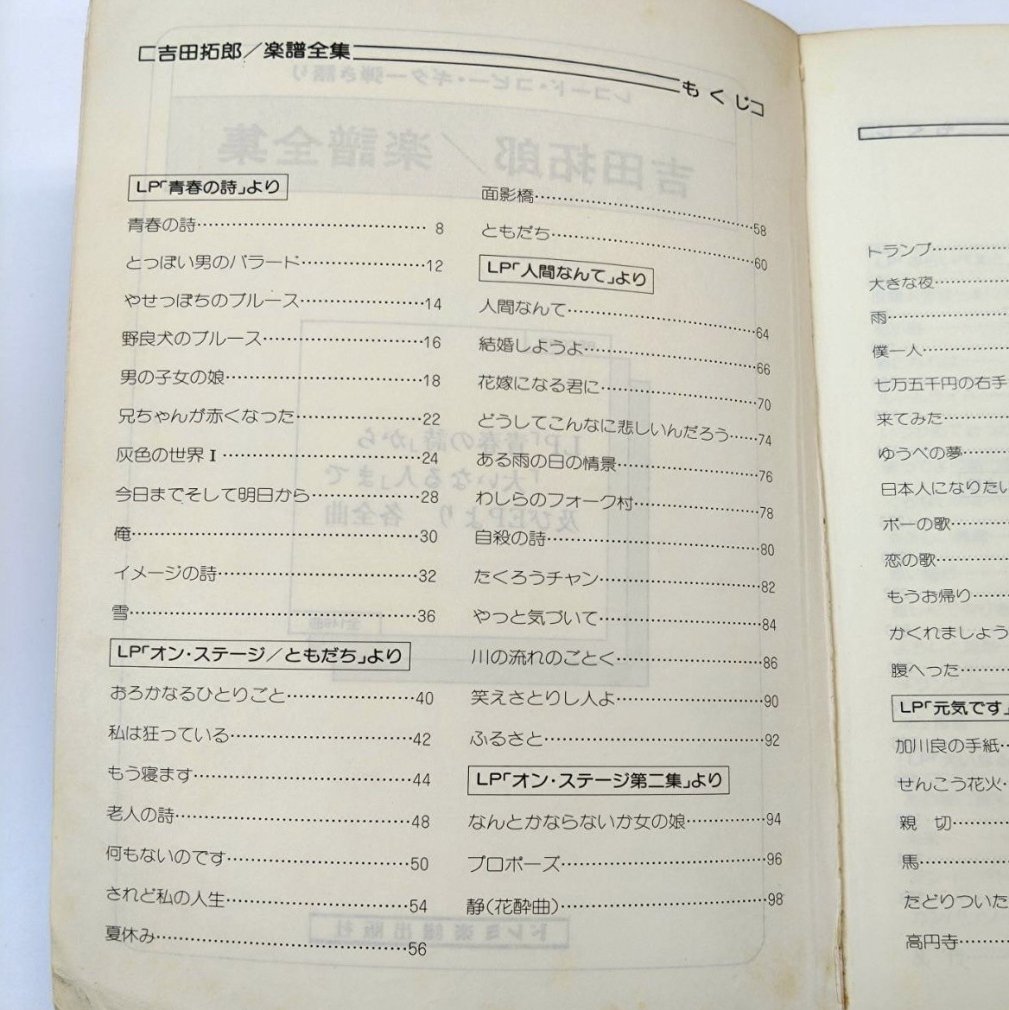 吉田拓郎/楽譜全集
もくじ
LP「青春の詩」より
青春の詩 8
とっぽい男のバラード 12
やせっぽちのブルース 14
野良犬のブルース 16
男の子女の娘 18
兄ちゃんが赤くなった 22
灰色の世界I 24
今日までそして明日から 28
俺 30
イメージの詩 32
雪 36
LP「オン・ステージ/ともだち」より
おろかなるひとりごと 40
私は狂っている 42
もう寝ます 44
老人の詩 48
何もないのです 50
されど私の人生 54
夏休み 56
面影橋 58
ともだち 60
LP「人間なんて」より
人間なんて 64
結婚しようよ 66
花嫁になる君に 70
どうしてこんなに悲しいんだろう 74
ある雨の日の情景 76
わしらのフォーク村 78
自殺の詩 80
たくろうチャン 82
やっと気づいて 84
川の流れのごとく 86
笑えさとりし人よ 90
ふるさと 92
LP「オン・ステージ第二集」より
なんとかならないか女の娘 94
プロポーズ 96
静(花酔曲) 98
トランプ
大きな夜
雨
僕一人
七万五千円の右手
来てみた
ゆうべの夢
日本人になりたい
ポーの歌
恋の歌
もうお帰り
かくれましょう
腹へった
LP「元気です」
加川良の手紙
せんこう花火
親 切
馬
たどりついた
高円寺